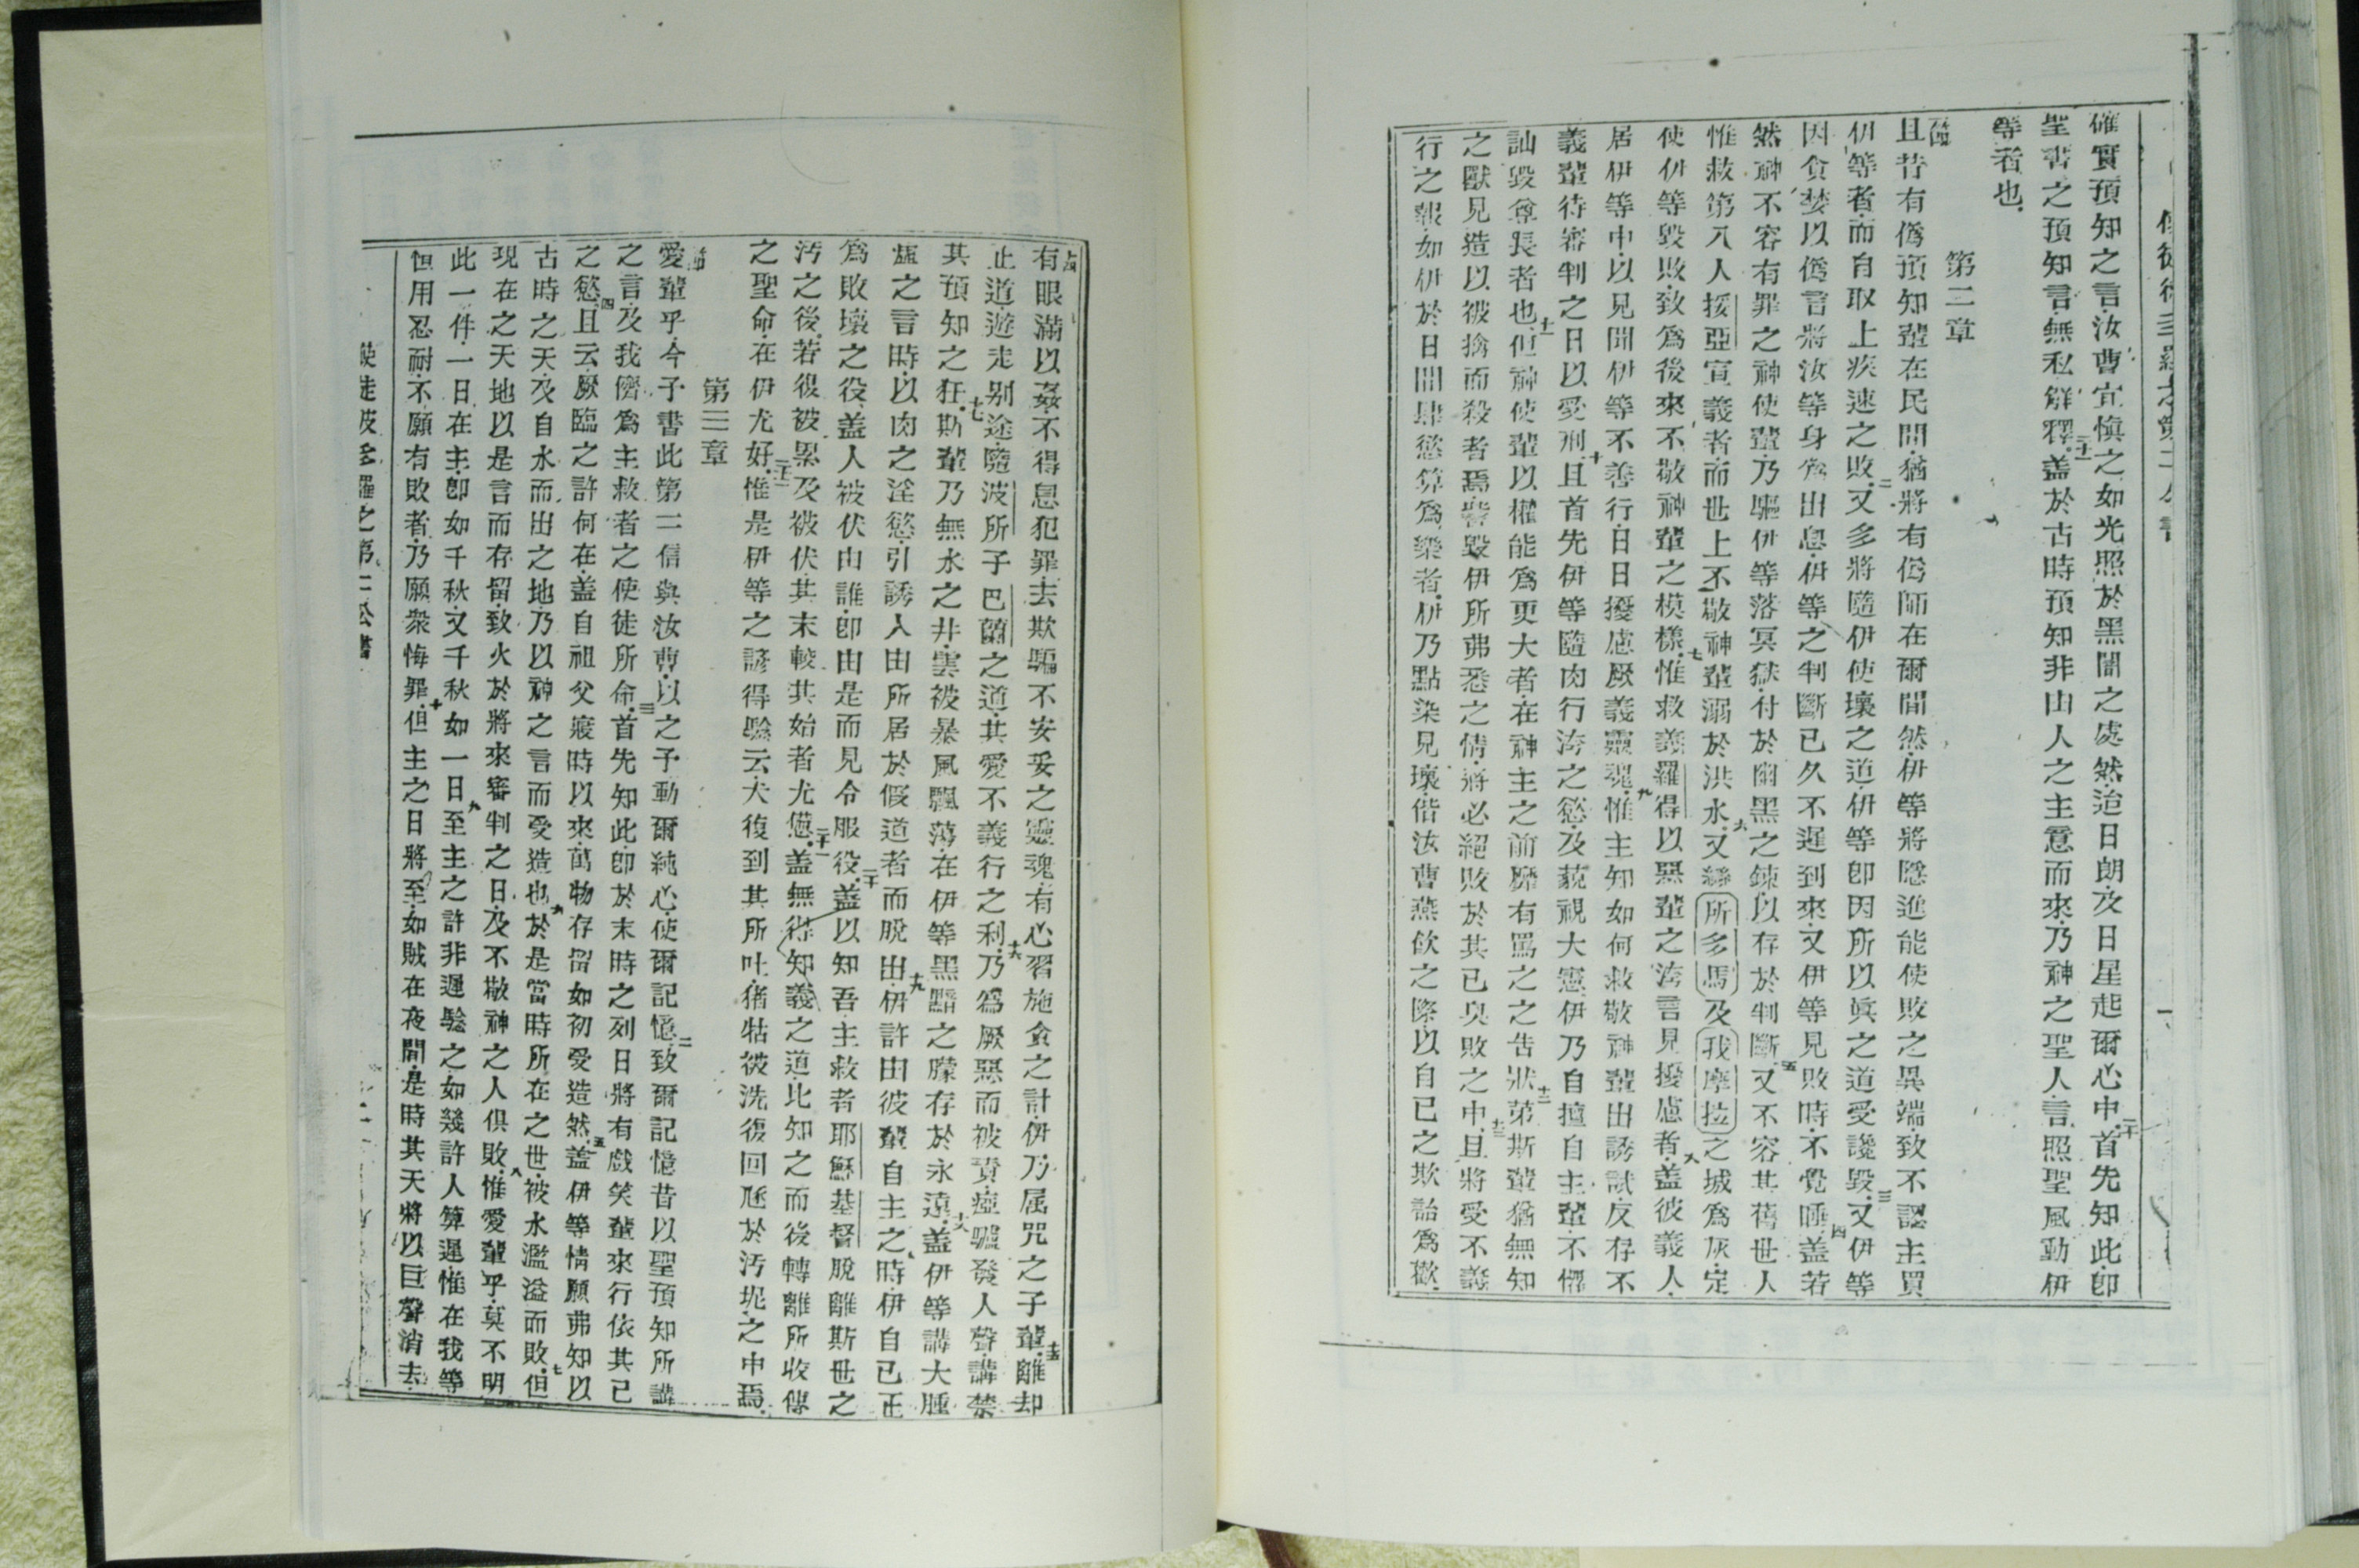 使徒彼多羅之第二公書
確實預知之言汝曹宜愼之如光照於黑闇之處然迨日朗及日星起爾心中二十首先知此卽
聖書之預知言無私解釋二十一盖於古時預知非由人之主意而來乃神之聖人言照聖風動伊
等者也
第二章
第一節
且昔有僞預知輩在民間猶將有僞師在爾間然伊等將隱進能使敗之異端致不認主買
伊等者而自取上疾速之敗二又多將隨伊使壞之道伊等卽因所以眞之道受讒毀三又伊等
因貪婪以僞言將汝等身爲出息伊等之判斷已久不遲到來又伊等見敗時不覺睡四盖若
然神不容有罪之神使輩乃驅伊等落冥獄付於闇黑之鍊以存於判斷五又不容其舊世人
惟救第八人挼亞宣義者而世上不敬神輩溺於洪水六又將所多馬及我摩拉之城爲灰定
使伊等毀敗致爲後來不敬神輩之模樣七惟救義羅得以惡輩之洿言見擾慮者八盖彼義人
居伊等中以見聞伊等不善行日日擾慮厥義靈魂九惟主知如何救敬神輩出誘試反存不
義輩待審判之日以受刑十且首先伊等隨肉行洿之慾及藐視大憲伊乃自擅自主輩不懼
訕毀尊長者也十一但神使輩以權能爲更大者在神主之前靡有罵之之告狀十二苐斯輩猶無知
之獸見造以被擒而殺者焉訾毀伊所弗悉之情將必絕敗於其已臭敗之中十三且將受不義
行之報如伊於日間肆慾算爲樂者伊乃點染見壞偕汝曹燕飮之際以自已之欺詒爲歡
十四
有眼滿以姦不得息犯罪去欺騙不安妥之靈魂有心習施貪之計伊乃屬咒之子輩十五離却
正道遊走別途隨波所子巴蘭之道其愛不義行之利十六乃爲厥惡而被責瘂驢發人聲講禁
其預知之狂十七斯輩乃無水之井雲被暴風飄薄在伊等黑黯之朦存於永遠十八盖伊等講大腫
虛之言時以肉之淫慾引誘人由所居於假道者而脫出十九伊許由彼輩自主之時伊自已正
爲敗壞之役盖人被伏由誰卽由是而見令服役二十盖以知吾主救者耶穌基督脫離斯世之
汚之後若復被累及被伏其末較其始者尤憊二十一盖無得知義之道比知之而後轉離所收傳
之聖命在伊尤好二十二惟是伊等之諺得驗云犬復到其所吐猪牯被洗復回𨇾於汚坭之中焉
第三章
一節
愛輩乎今予書此第二信與汝曹以之予動爾純心使爾記憶二致爾記憶昔以聖預知所講
之言及我儕爲主救者之使徒所命三首先知此卽於末時之列日將有戲笑輩來行依其已
之慾四且云厥臨之許何在盖自祖父寢時以來萬物存留如初受造然五盖伊等情願弗知以
古時之天及自水而出之地乃以神之言而受造也六於是當時所在之世被水濫溢而敗七但
現在之天地以是言而存留致火於將來審判之日及不敬神之人俱敗八惟愛輩乎莫不明
此一件一日在主卽如千秋又千秋如一日九至主之許非遲騐之如幾許人算遲惟在我等
恒用忍耐不願有敗者乃願衆悔罪十但主之日將至如賊在夜間是時其天將以巨聲消去
使徒彼多羅之第二公書
二